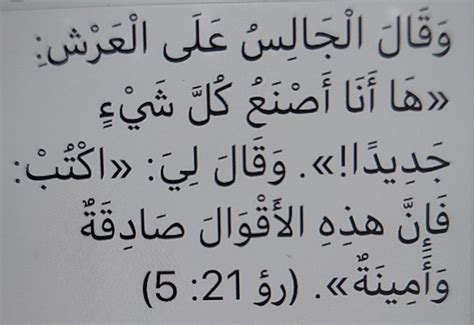 وَقَالَ الْجَالِسُ عَلَى الْعَرْشِ:
«هَا أَنَا أَصْنَعُ كُلَّ شَيْءٍ
جَدِيدًا!». وَقَالَ لِيَ: «اكْتُبْ:
فَإِنَّ هذِهِ الأَقْوَالَ صَادِقَةٌ
وَأَمِينَةٌ». (رؤ 21: 5)